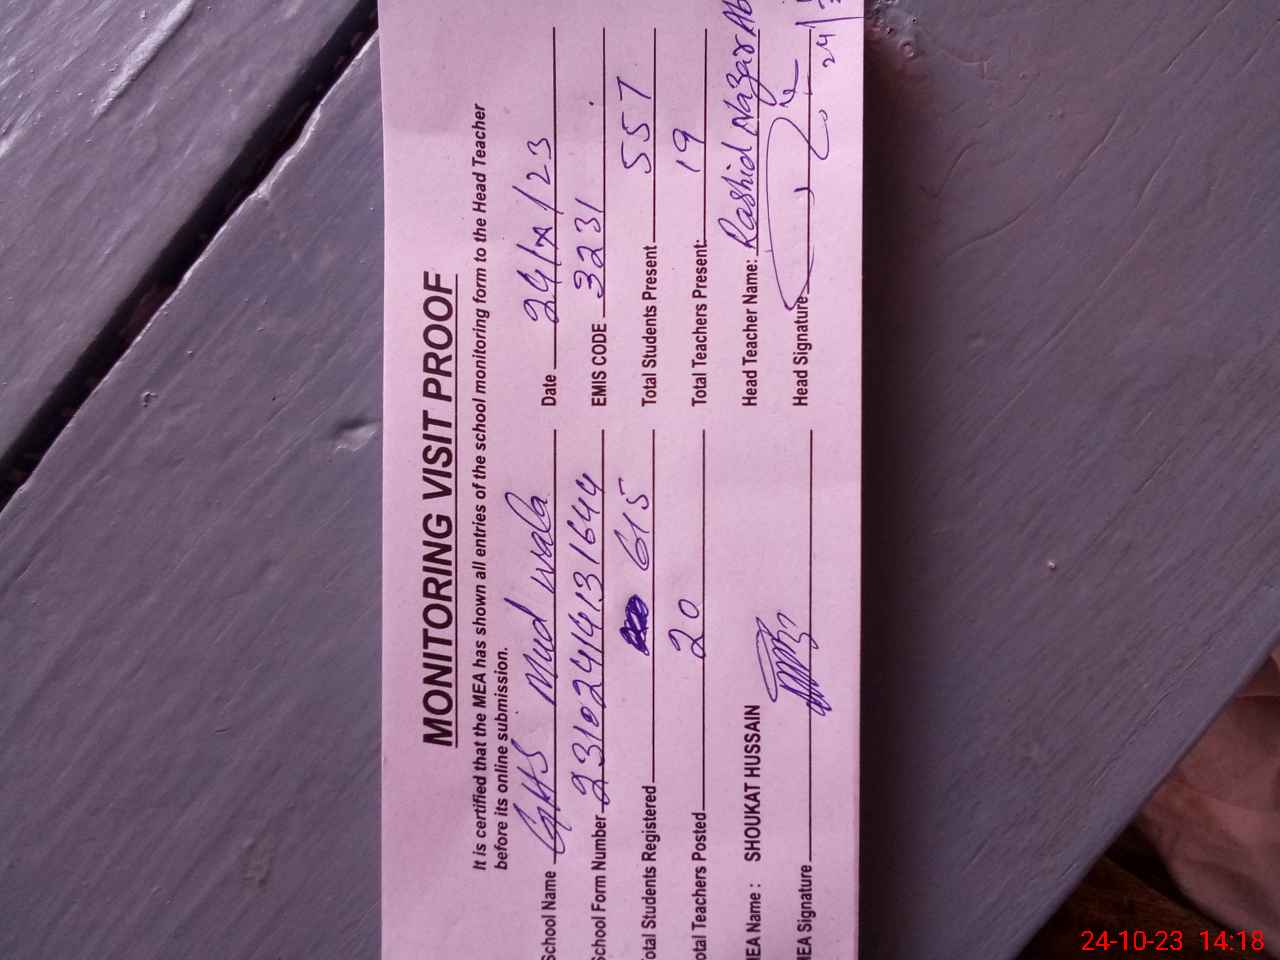 MONITORING VISIT PROOF
It is certified that the MEA has shown all entries of the school monitoring form to the Head Teacher
before its online submission.
School Name GHS Mud wala Date 24/x/23
School Form Number 231024141131644 EMIS CODE 3231
Total Students Registered 615 Total Students Present 557
Total Teachers Posted 20 Total Teachers Present: 19
MEA Name : SHOUKAT HUSSAIN Head Teacher Name: Rashid Nazar Ab
MEA Signature Head Signature
24-10-23 14:18